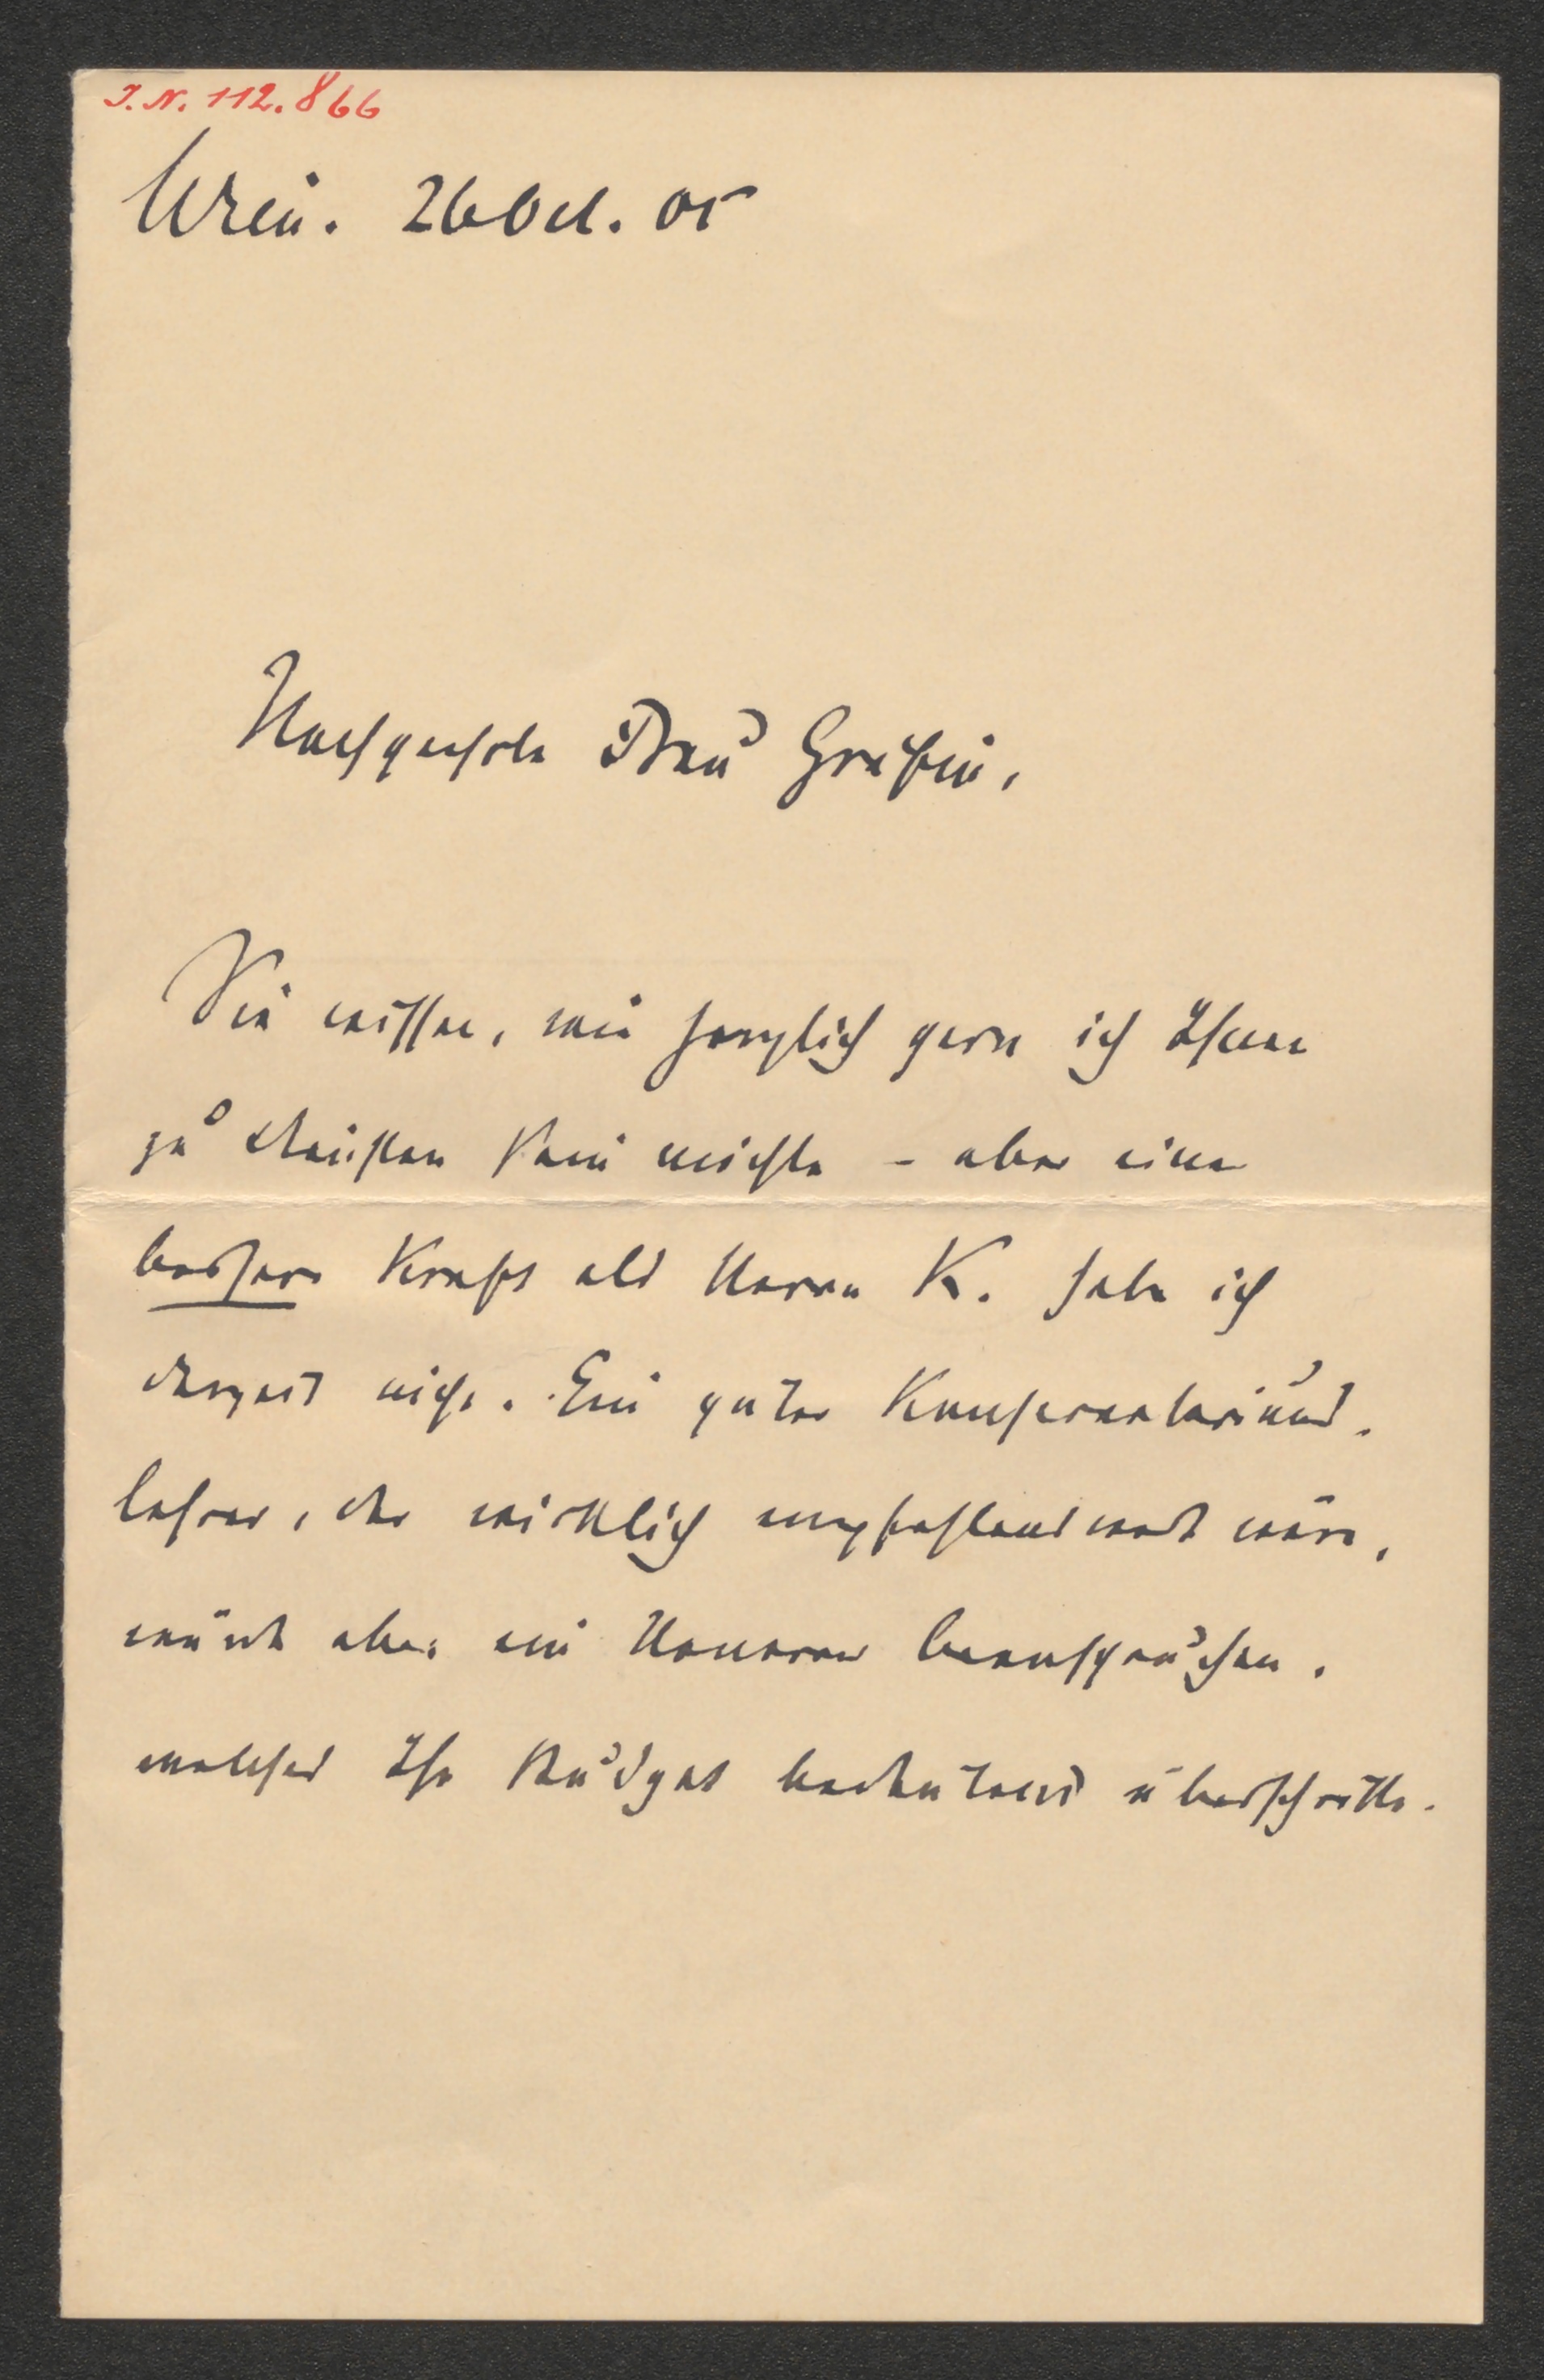 I. N. 112.866
Wien. 26 Oct. 05
Hochgeehrte Frau Gräfin,
Sie wissen, wie herzlich gern ich Ihnen
zu Diensten sein möchte – aber eine
bessere Kraft als Herrn K. habe ich
derzeit nicht. Ein guter Konservatoriums-
lehrer, der wirklich empfehlenswert wäre,
würde aber ein Honorar beanspruchen,
welches Ihr Budget bedeutend überschritte.